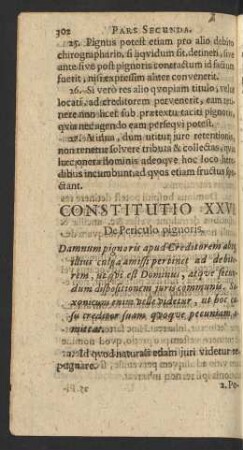 302 PARS SECUNDA.
25. Pignus potest etiam pro alio debito
chirographario, si liquidum sit, detineri, sive
ante sive post pignoris contractum id factum
fuerit, nisi expressim aliter convenerit.
26. Si verò res alio quopiam titulo, velut
locati, ad creditorem pervenerit, eam
nere non licet sub prætextu taciti pignoris,
quin nec agendo eam persequi potest.
27. dum utitur jure retentionis,
non tenetur solvere tributa & collectas, quia
hæc onera dominis adeoque hoc loco
debitoribus incumbunt, ad quos etiam fructus
ctant.
CONSTITUTIO XXVI
De Periculo pignoris.
Damnum pignoris apud Creditorem
culpa amissi pertinet ad debito-
rem, ut qui est Dominus, atque secun-
dum dispositionem juris communis.
xonicum enim velle videtur, ut hoc
su creditor suam quoque pecuniam
mittat.
1. Id quod naturali etiam juri videtur re-
pugnare.
2. Po-